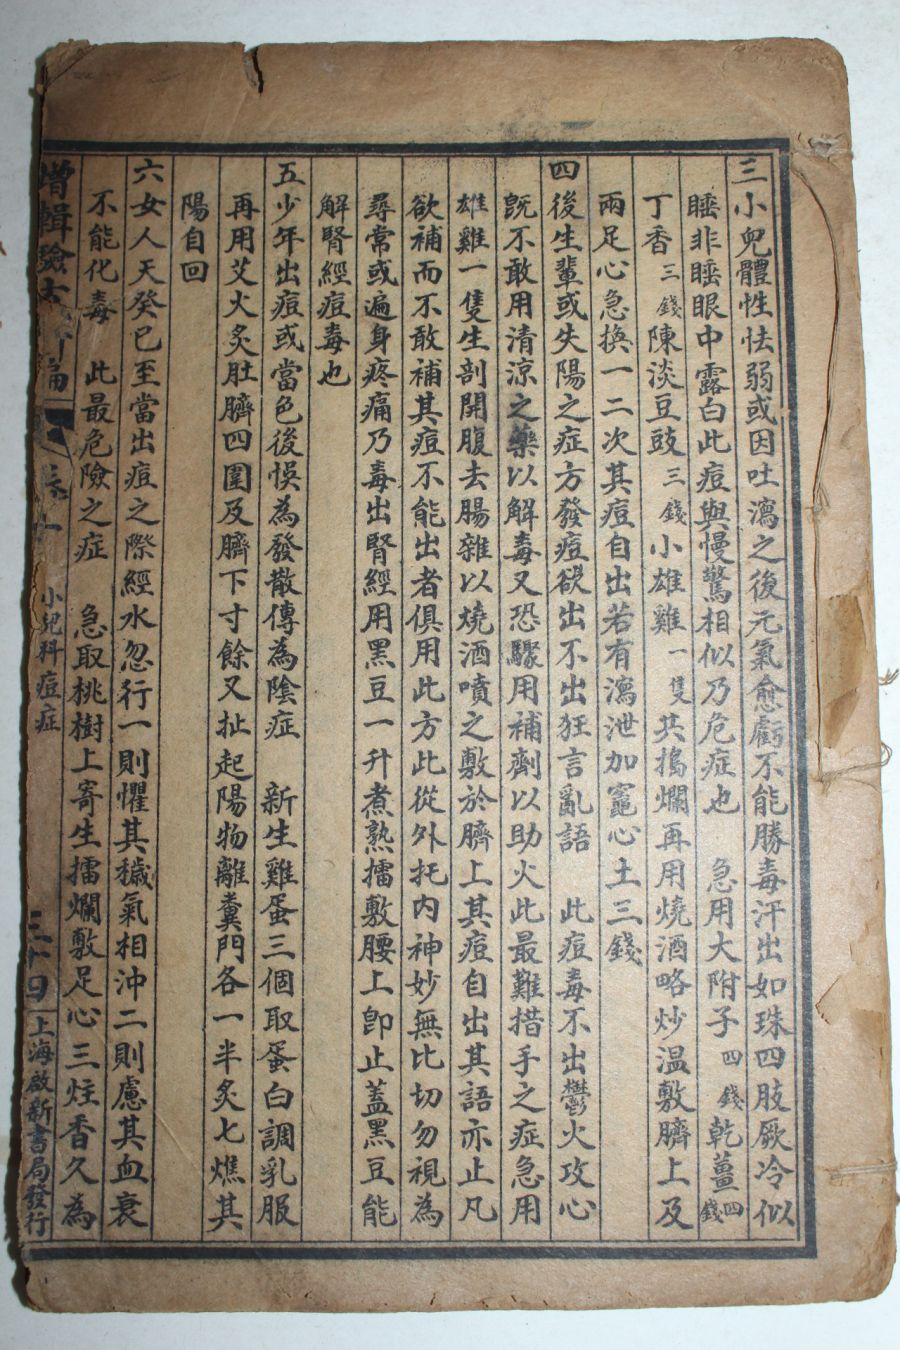 三小兒體性怯弱或因吐瀉之後元氣愈虧不能勝毒汗出如珠四肢厥冷似
睡非睡眼中露白此痘與慢驚相似乃危症也　急用大附子四錢乾薑四錢
丁香三錢陳淡豆豉三錢小雄雞一隻共搗爛再用燒酒略炒温敷臍上及
兩足心急換一二次其痘自出若有瀉泄加竈心土三錢
四後生輩或失陽之症方發痘欲出不出狂言亂語　此痘毒不出鬱火攻心
既不敢用清涼之藥以解毒又恐驟用補劑以助火此最難措手之症急用
雄雞一隻生剖開腹去腸雜以燒酒噴之敷於臍上其痘自出其語亦止凡
欲補而不敢補其痘不能出者俱用此方此從外托内神妙無比切勿視為
尋常或遍身疼痛乃毒出腎經用黑豆一升煮熟擂敷腰上卽止蓋黑豆能
解腎經痘毒也
五少年出痘或當色後悞為發散傳為陰症　新生雞蛋三個取蛋白調乳服
再用艾火炙肚臍四圍及臍下寸餘又扯起陽物離糞門各一半炙七燋其
陽自回
六女人天癸已至當出痘之際經水忽行一則懼其穢氣相沖二則慮其血衰
不能化毒　此最危險之症　急取桃樹上寄生擂爛敷足心三炷香久為
增輯驗 編 小兒科痘症 三十四 上海啟新書局發行